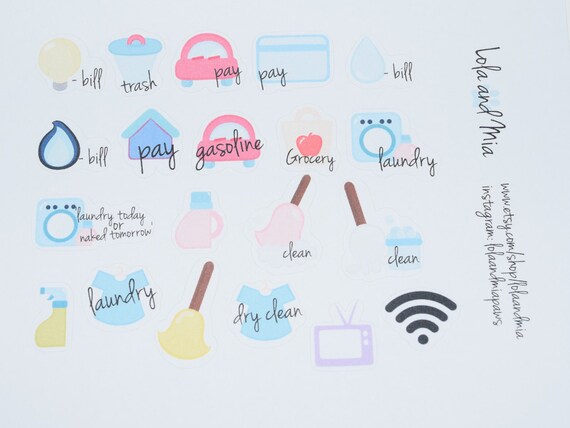 - bill
trash
pay
pay
- bill
- bill
pay
gasoline
Grocery
laundry
laundry today
or
naked tomorrow
clean
clean
laundry
dry clean
Lola and Mia
www.etsy.com/shop/lolaandmia
instagram:lolaandmiapaws